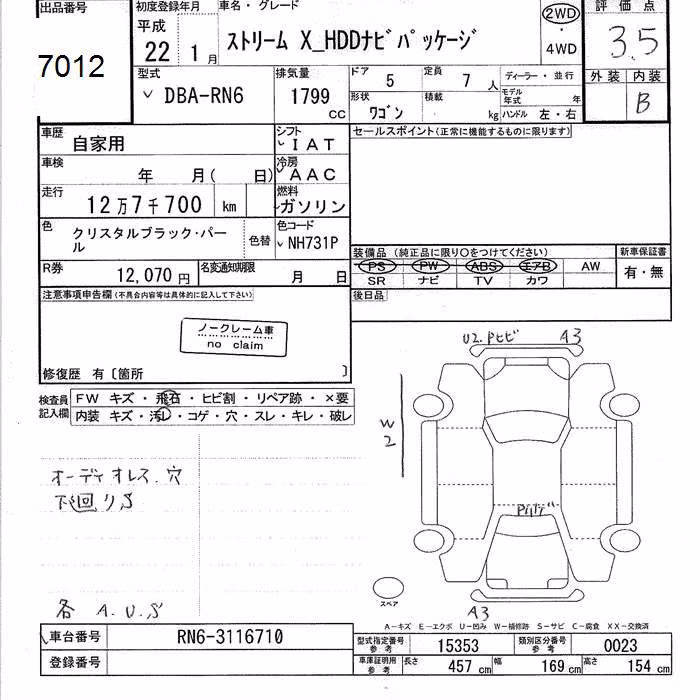 出品番号
7012
初度登録年月
平成
22 1月
車名・グレード
ストリーム X_HDDナビパッケージ
2WD
・
4WD
評価点
3.5
外装 内装
B
型式
DBA-RN6
排気量
1799
CC
ドア 5
定員 7人
形状 ワゴン
積載 kg
ディーラー・並行
モデル年式 年
ハンドル 左・右
車歴 自家用
シフト IAT
車検 年 月( 日)
冷房 AAC
走行 12万7千700 km
燃料 ガソリン
色 クリスタルブラック・パール
色替
色コード NH731P
R券 12,070円
名変通知期限 月 日
セールスポイント(正常に機能するものに限ります)
装備品(純正品に限り○をつけてください)
PS PW ABS エアB AW
SR ナビ TV カワ
新車保証書
有・無
後日品
注意事項申告欄(不具合内容等は具体的に記入して下さい)
ノークレーム車
no claim
修復歴 有〔箇所 〕
検査員記入欄
FW キズ・飛石・ヒビ割・リペア跡・×要
内装 キズ・汚レ・コゲ・穴・スレ・キレ・破レ
オーディオレス.穴
下回りS
各 A.U.S
U2.Pヒビ A3
W
2
スペア
A3
A-キズ E-エクボ U-凹み W-補修跡 S-サビ C-腐食 XX-交換済
車台番号 RN6-3116710
登録番号
型式指定番号 参考 15353
類別区分番号 参考 0023
車庫証明用 参考 長さ 457cm 幅 169cm 高さ 154cm